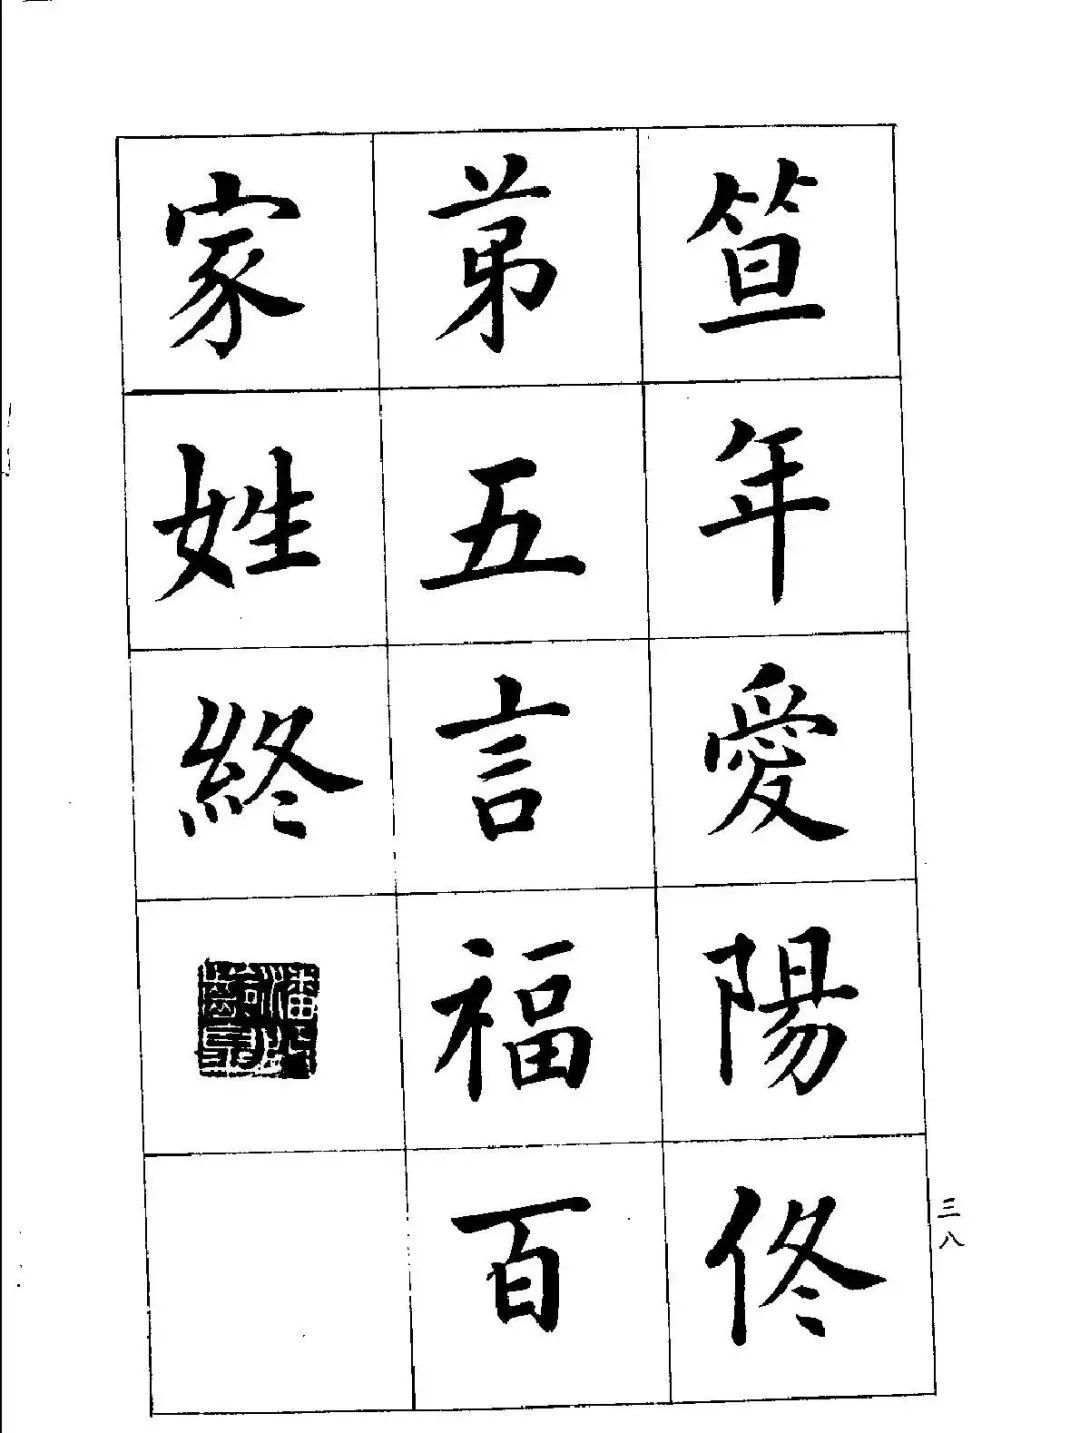 笪年愛陽佟
苐五言福百
家姓終
三八